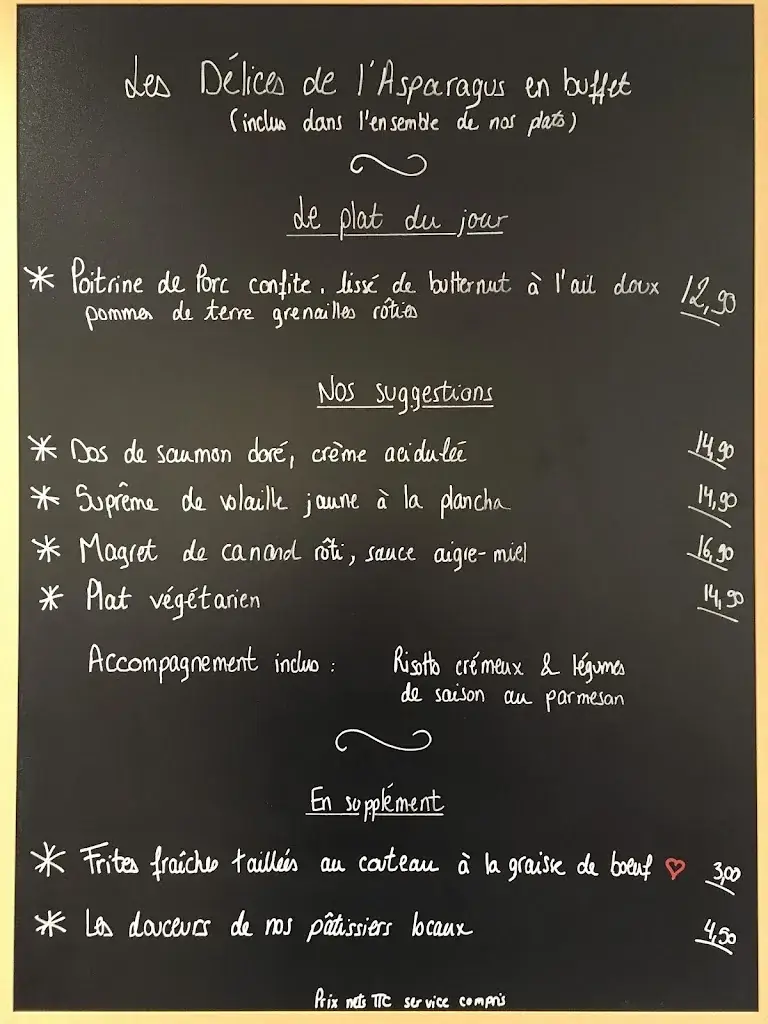 Les Délices de l'Asparagus en buffet
(inclus dans l'ensemble de nos plats)
Le plat du jour
* Poitrine de Porc confite, lissé de butternut à l'ail doux 12,90
pommes de terre grenailles rôties
Nos suggestions
* Dos de saumon doré, crème acidulée 14,90
* Suprême de volaille jaune à la plancha 14,90
* Magret de canard rôti, sauce aigre-miel 16,90
* Plat végétarien 14,90
Accompagnement inclus : Risotto crémeux & légumes
de saison au parmesan
En supplément
* Frites fraîches taillées au couteau à la graisse de boeuf ♡ 3,00
* Les douceurs de nos pâtissiers locaux 4,50
Prix nets TTC service compris